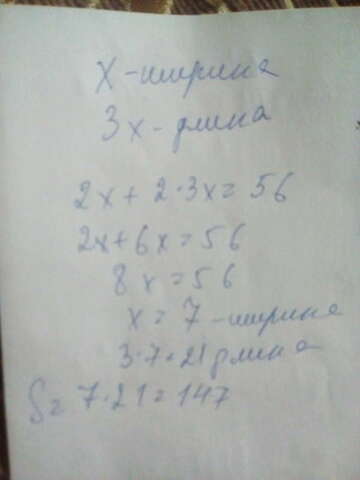 x - ширина
3x - длина
2x + 2·3x = 56
2x + 6x = 56
8x = 56
x = 7 - ширина
3·7=21 длина
S = 7·21 = 147